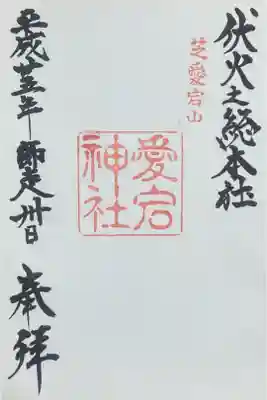 伏火之総本社
芝愛宕山
愛宕
神社
平成廿五年師走卅日
奉拝